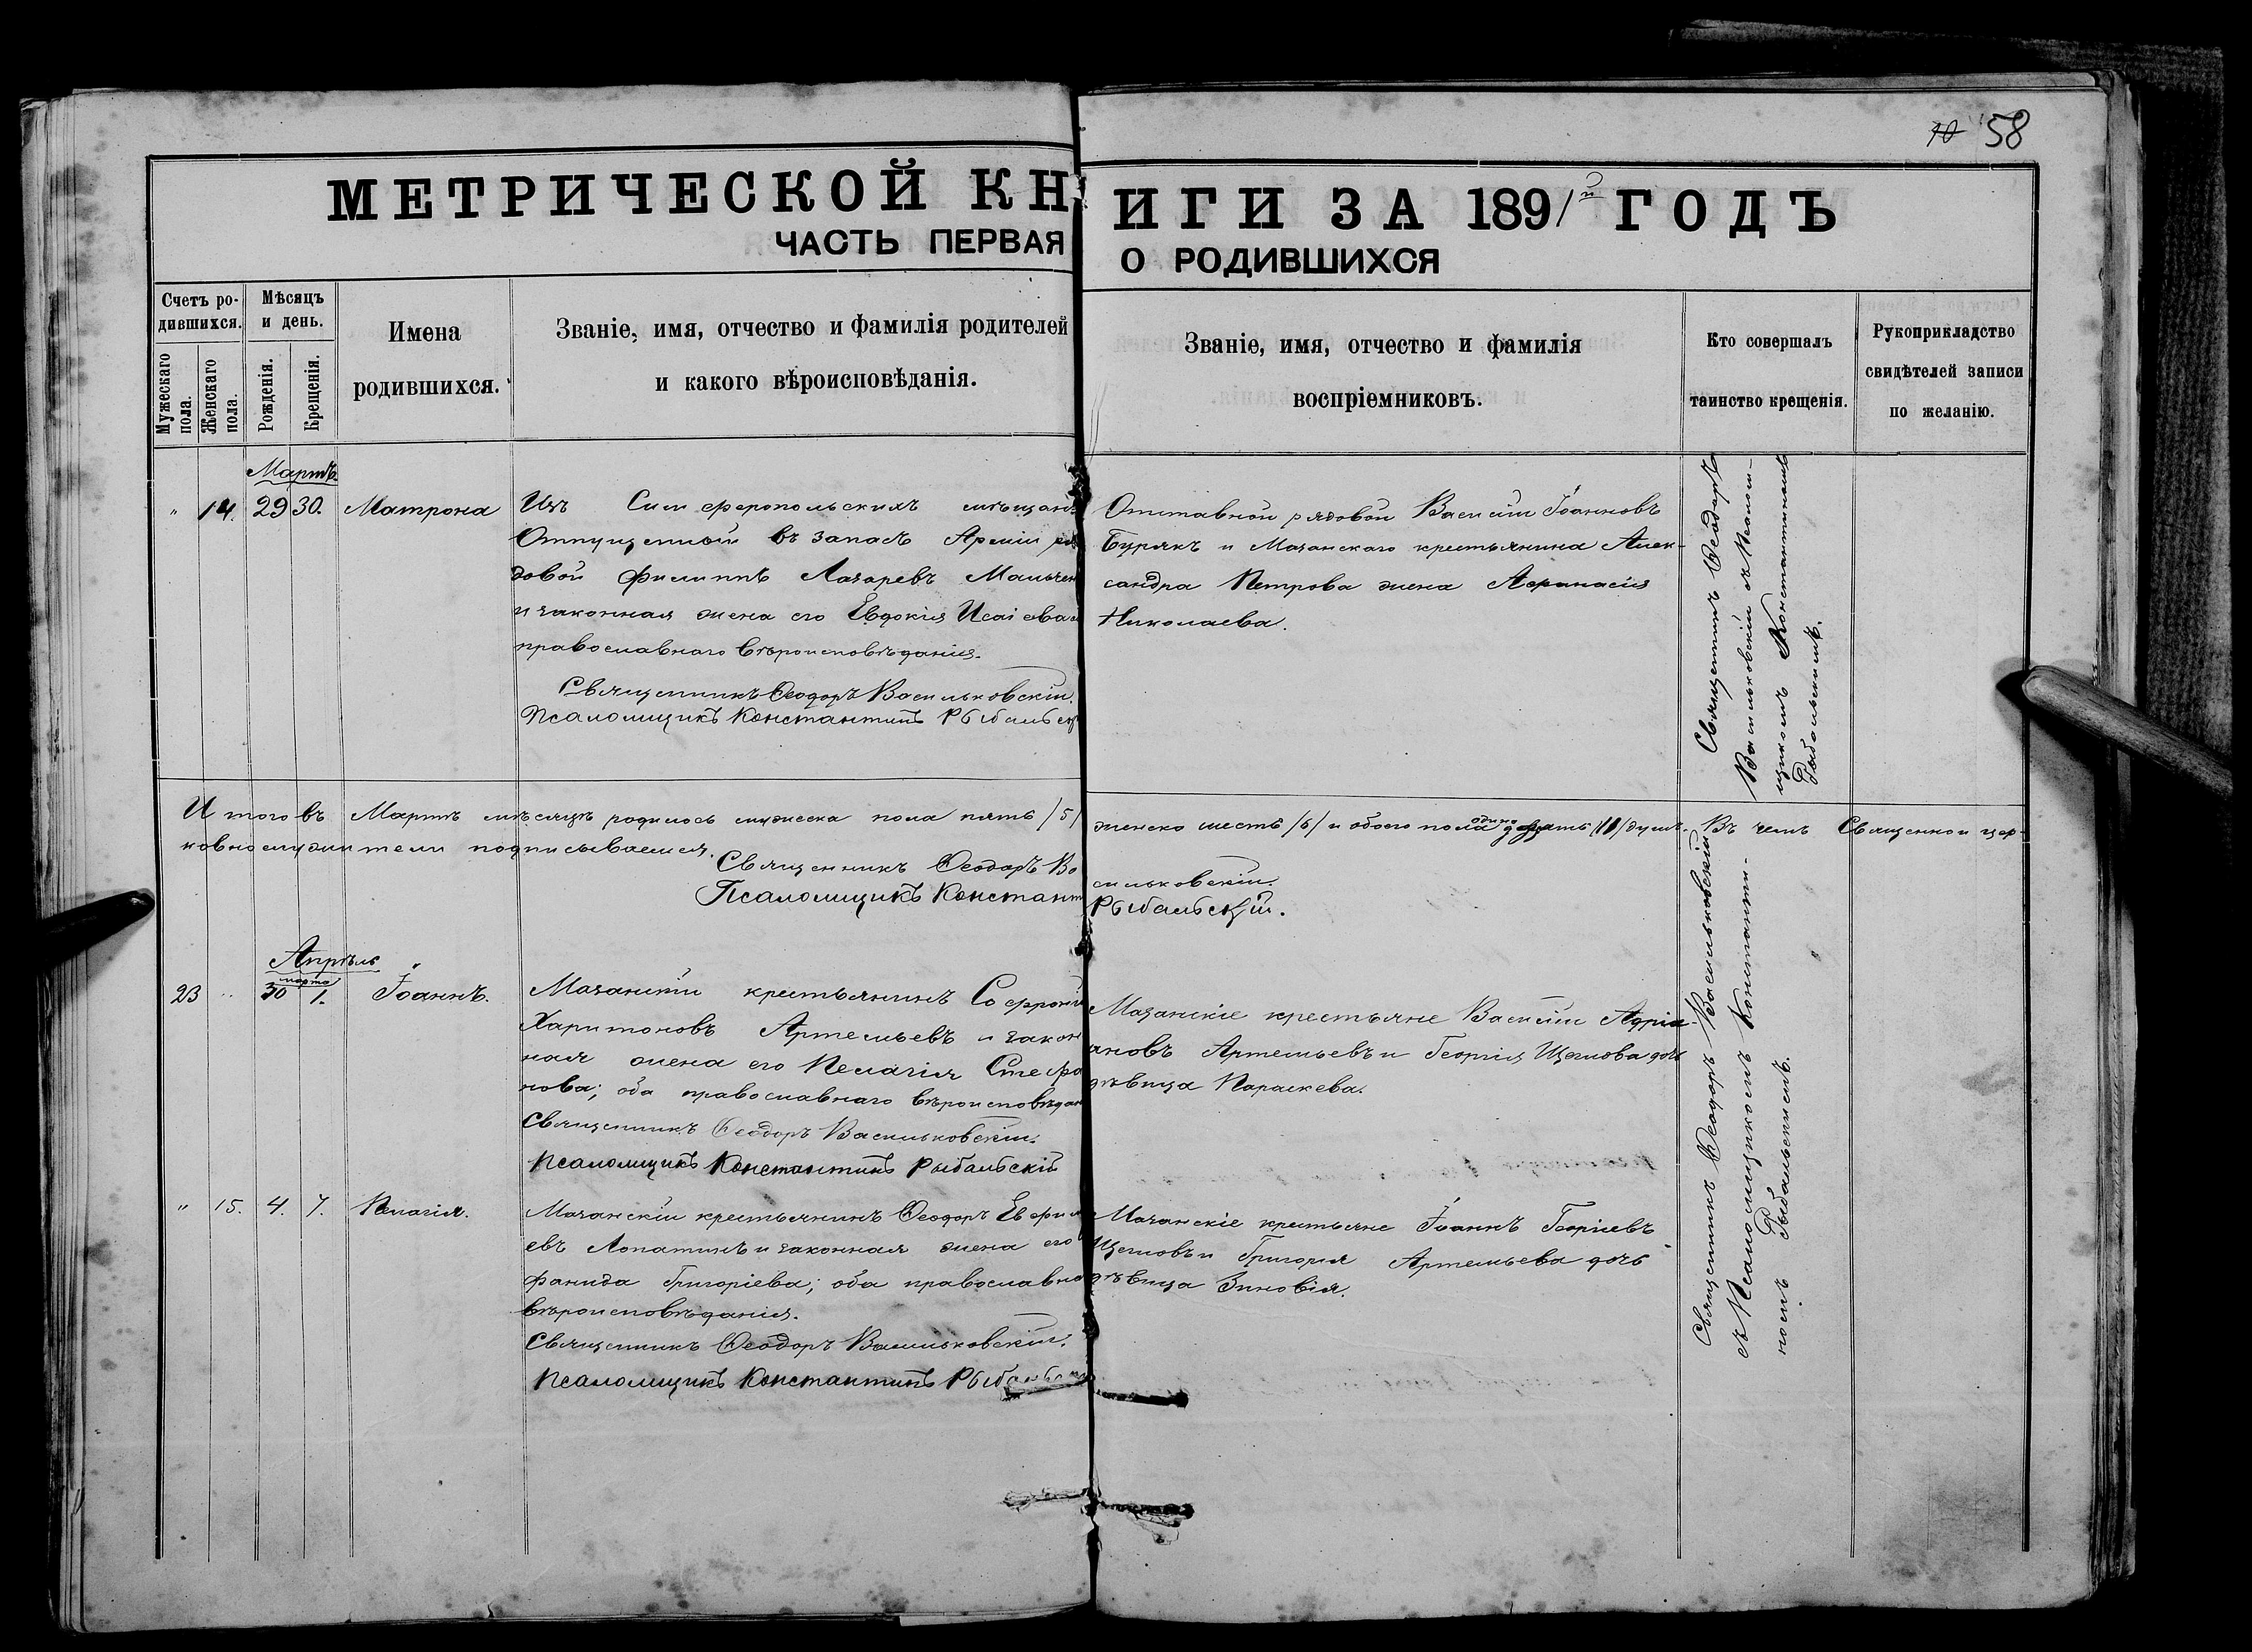 10 58
МЕТРИЧЕСКОЙ КНИГИ ЗА 1891й ГОДЪ
ЧАСТЬ ПЕРВАЯ О РОДИВШИХСЯ
Счетъ родившихся.
Мужескаго пола.
Женскаго пола.
Мѣсяцъ и день.
Рожденія.
Крещенія.
Имена родившихся.
Званіе, имя, отчество и фамилія родителей
и какого вѣроисповѣданія.
Званіе, имя, отчество и фамилія
воспріемниковъ.
Кто совершалъ
таинство крещенія.
Рукоприкладство
свидѣтелей записи
по желанію.
Мартъ.
" 14. 29 30. Матрона
Изъ Симферопольскихъ мѣщан
Отпущенной въ запасъ Арміи ря
довой Филиппъ Лазаревъ Мальчен
и законная жена его Евдокія Исаіева
православнаго вѣроисповѣданія.
Священникъ Ѳеодоръ Васильковскій.
Псаломщикъ Константинъ Рыбальск
Отставной рядовой Василій Іоанновъ
Бурякъ и Мазанскаго крестьянина Алек-
сандра Петрова жена Афанасія
Николаева.
Священникъ Ѳеодоръ
Васильковскій съ Псалом-
щикомъ Константиномъ
Рыбальскимъ.
Итого въ Мартѣ мѣсяцѣ родилось мужеска пола пять /5/ женско шесть /6/ и обоего пола одинадцать /11/ душъ. Въ чемъ Священно и цер-
ковнослужители подписываемся.
Священникъ Ѳеодоръ Васильковскій.
Псаломщикъ Констант Рыбальскій.
Апрѣль
марта
23 " 30 1. Іоаннъ.
Мазанскій крестьянинъ Софроні
Харитоновъ Артемьевъ и закон
ная жена его Пелагія Стефа
нова; оба православнаго вѣроисповѣдан
Священникъ Ѳеодоръ Васильковскій.
Псаломщикъ Константинъ Рыбальскій
Мазанскіе крестьяне Василій Адріа-
новъ Артемьевъ и Георгія Щеглова дочь
дѣвица Параскева.
" 15. 4. 7. Пелагія.
Мазанскій крестьянинъ Ѳеодоръ Евфим
евъ Лопатинъ и законная жена его
Фанида Григоріева; оба православна
вѣроисповѣданія.
Священникъ Ѳеодоръ Васильковскій.
Псаломщикъ Константинъ Рыбальск
Мазанскіе крестьяне Іоаннъ Георгіевъ
Щегловъ и Григорія Артемьева дочь
дѣвица Зиновія.
Священникъ Ѳеодоръ Васильковскій
съ Псаломщикомъ Константи-
номъ Рыбальскимъ.